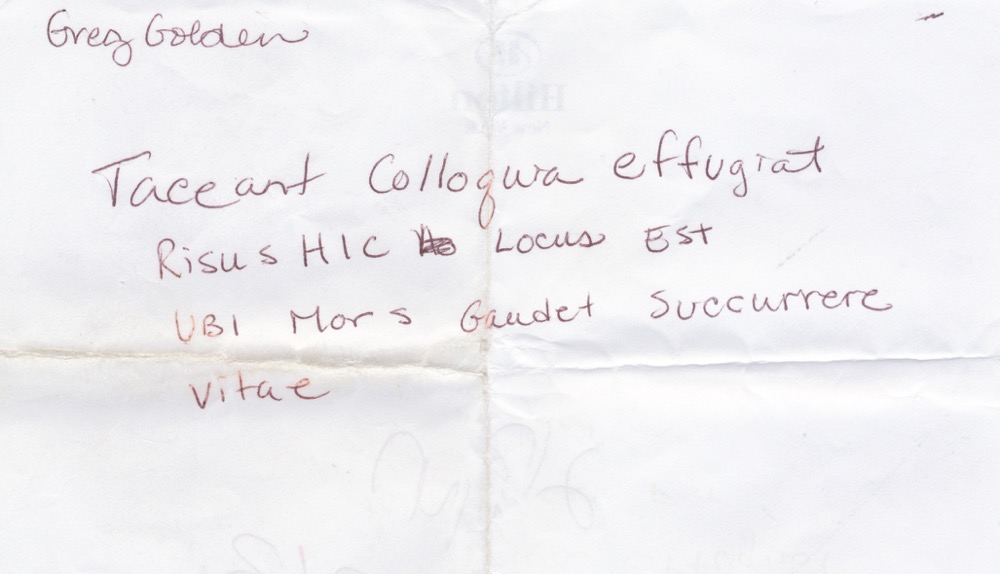 Greg Golden
Taceant Colloqura effugiat
Risus HIC Locus Est
UBI Mors Gaudet Succurrere
Vitae